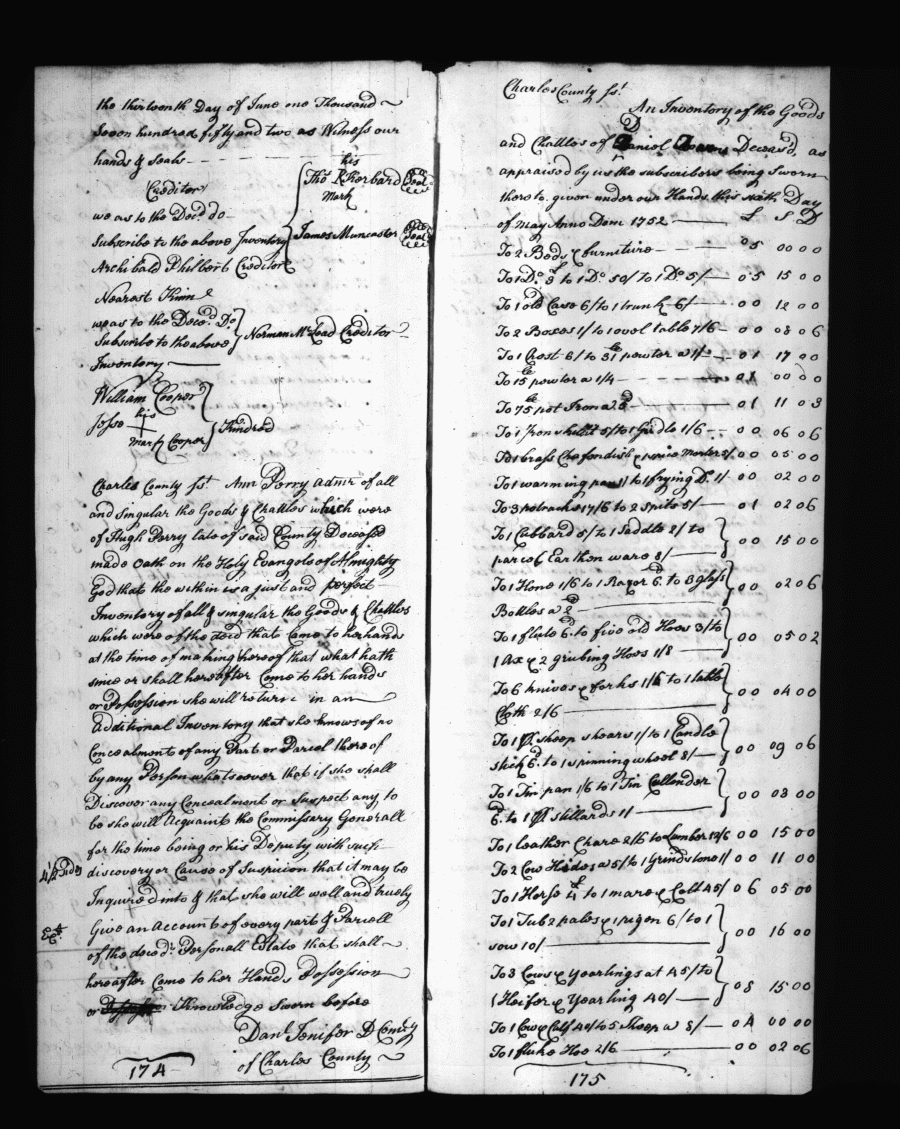 the thirteenth Day of June one Thousand
Seven hundred fifty and two as Witness our
hands & Seals
his
Creditor
Thos R Kerbard Seal
Mark
we as to the Decd do
Subscribe to the above Inventory
James Muncaster Seal
Archibald Philbert Creditor
Nearest Kinn
we as to the Decd Do
Subscribe to the above
Norman McLoad Creditor
Inventory
William Cooper
his
Jesse + Kindred
mark Cooper
Charles County Sst Ann Perry admr of all
and singular the Goods & Chattles which were
of Hugh Perry late of said County Deceased
made oath on the Holy Evangels of Almighty
God that the within is a just and perfect
Inventory of all & singular the Goods & Chattles
which were of the decd that Came to her hands
at the time of making thereof that what hath
since or shall hereafter Come to her hands
or Possession she will return in an
Additional Inventory that she knows of no
Concealment of any Part or Parcel thereof
by any Person whatsoever that if she shall
Discover any Concealment or Suspect any to
be she will Acquaint the Commissary Generall
for the time being or his Deputy with such
discovery or Cause of Suspicion that it may be
4 1/2 Sides
Inquired into & that she will well and truely
Give an Account of every part & Parcell
Exd
of the decds Personall Estate that shall
hereafter Come to her Hands Possession
or Knowledge Sworn before
Danl Jenifer D Comry
of Charles County
174
Charles County Sst
An Inventory of the Goods
and Chattles of Daniel Deceasd, as
appraised by us the subscribers being Sworn
thereto given under our Hands this sixth Day
of may Anno Dom 1752 £ S D
To 2 Beds & furniture 05 00 00
To 1 Do 3 to 1 Do 50/ to 1 Do 5/ 05 15 00
To 1 old Case 6/ to 1 trunk 6/ 00 12 00
To 2 Boxes 1/ to 1 oval table 7/6 00 08 06
To 1 Chest 6/ to 31 le pewter a 1/ 01 17 00
To 15 le pewter a 1/4 01 00 00
To 75 le pot Iron a 5d 01 11 03
To 1 Iron skellit 5/ to 1 Gridle 1/6 00 06 06
To 1 brass Chefendish & 1 spice Morter 5/ 00 05 00
To 1 warming pan 1/ to 1 frying Do 1/ 00 02 00
To 3 potracks 17/6 to 2 Spits 5/ 01 02 06
To 1 Cubbard 5/ to 1 Saddle 2/ to
parcel Earthen ware 8/ 00 15 00
To 1 Hone 1/6 to 1 Razor 6d to 3 glass
Bottles a 2d 00 02 06
To 1 flute 6d to five old Hoes 3/ to
1 Ax & 2 grubing Hoes 1/8 00 05 02
To 6 knives & forks 1/6 to 1 table
Cloth 2/6 00 04 00
To 1 pr sheep shears 1/ to 1 Candle
stick 6d to 1 spinning wheel 8/ 00 09 06
To 1 Tin pan 1/6 to 1 Tin Cullender
6d to 1 pr stillards 1/ 00 03 00
To 1 leather Chare 2/6 to Lumber 12/6 00 15 00
To 2 Cow Hides a 5/ to 1 Grindstone 1/ 00 11 00
To 1 Horse £4 to 1 mare & Colt 45/ 06 05 00
To 1 Tub 2 pales & 1 pigon 6/ to 1
sow 10/ 00 16 00
To 3 Cows & Yearlings at 45/ to
1 Heifer & Yearling 40/ 08 15 00
To 1 Cow & Calf 40/ to 5 Sheep a 8/ 04 00 00
To 1 fluke Hoe 2/6 00 02 06
175